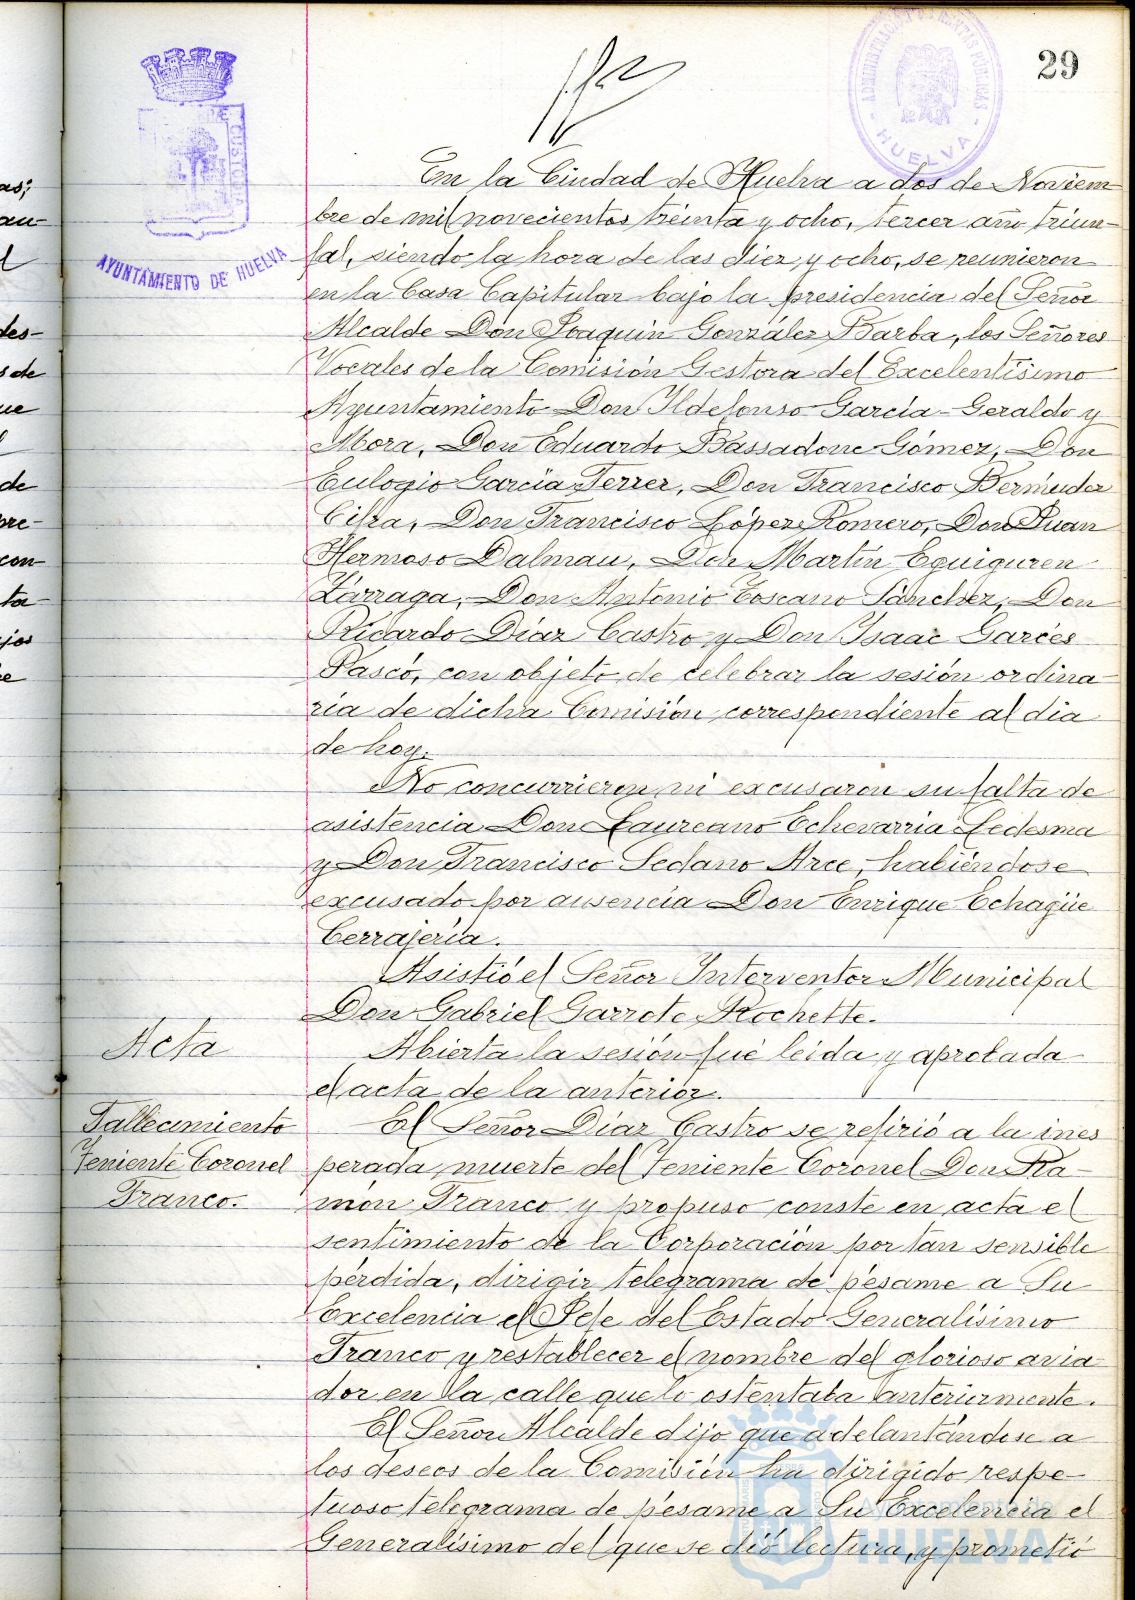 29
ADMINISTRACIÓN DE RENTAS PÚBLICAS
HUELVA
AYUNTAMIENTO DE HUELVA
En la Ciudad de Huelva a dos de Noviem-
bre de mil novecientos treinta y ocho, tercer año triun-
fal, siendo la hora de las diez y ocho, se reunieron
en la Casa Capitular bajo la presidencia del Señor
Alcalde Don Joaquin González Barba, los Señores
Vocales de la Comisión Gestora del Excelentísimo
Ayuntamiento Don Ildefonso García-Geraldo y
Mora, Don Eduardo Bassadone Gómez, Don
Eulogio García Ferrer, Don Francisco Bermúdez
Cifra, Don Francisco López Romero, Don Juan
Hermoso Dalmau, Don Martín Eguiguren
Zárraga, Don Antonio Toscano Sánchez, Don
Ricardo Díaz Castro y Don Isaac Garcés
Pascó, con objeto de celebrar la sesión ordina-
ria de dicha Comisión correspondiente al dia
de hoy.
No concurrieron ni excusaron su falta de
asistencia Don Laureano Echevarria Ledesma
y Don Francisco Sedano Arce, habiéndose
excusado por ausencia Don Enrique Echagüe
Cerrajería.
Asistió el Señor Interventor Municipal
Don Gabriel Garrote Rochette.
Acta
Abierta la sesión fué leida y aprobada
el acta de la anterior.
Fallecimiento
Teniente Coronel
Franco.
El Señor Díaz Castro se refirió a la ines
perada muerte del Teniente Coronel Don Ra-
món Franco y propuso conste en acta el
sentimiento de la Corporación por tan sensible
pérdida, dirigir telegrama de pésame a Su
Excelencia el Jefe del Estado Generalísimo
Franco y restablecer el nombre del glorioso avia-
dor en la calle que lo ostentaba anteriormente.
El Señor Alcalde dijo que adelantándose a
los deseos de la Comisión ha dirigido respe-
tuoso telegrama de pésame a Su Excelencia el
Generalísimo del que se dió lectura, y prometió
Ayuntamiento de
HUELVA
as;
au-
l
des-
s de
ue
de
pre-
con-
ta-
ajos